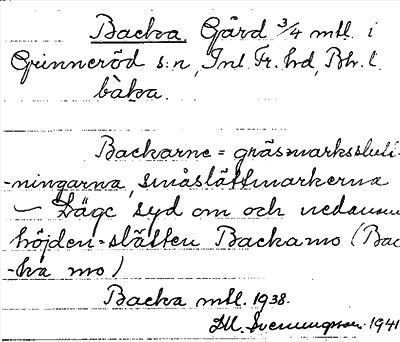 Backa Gård 3/4 mtl. i
Grinneröd s:n, Inl. Fr. hd, Bh. l.
bàka.
Backarne = gräsmarksslutt-
-ningarna, småslättmarkerna
– Läge syd om och nedanom
höjden-slätten Backamo (Bac
-ka mo)
Backa mtl. 1938.
Svenungsson 1941